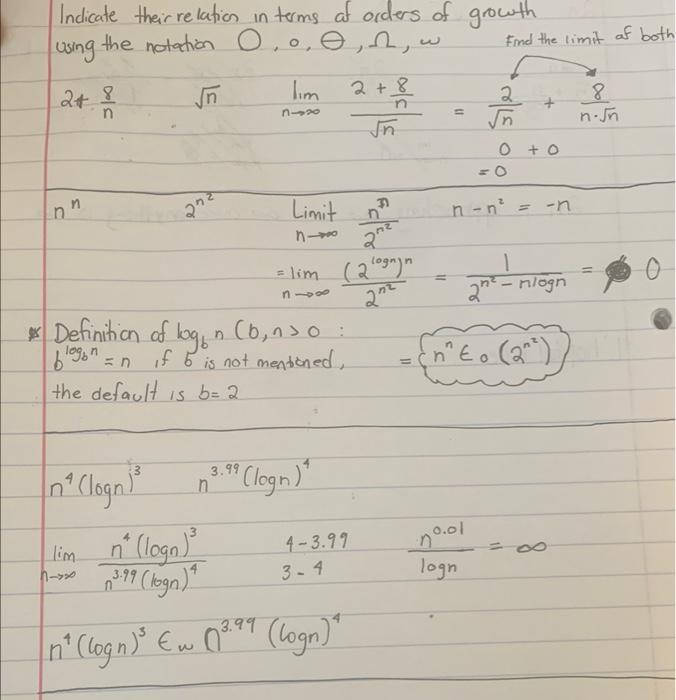 Indicate their relation in terms of orders of growth
using the notation O, o, Θ, Ω, ω
Find the limit of both
2+ 8/n    √n    lim n→∞ (2 + 8/n)/√n = 2/√n + 8/(n·√n)
0 + 0
= 0
n^n    2^(n^2)    Limit n→∞ n^n/2^(n^2)    n - n² = -n
= lim n→∞ (2^(logn))^n/2^(n^2) = 1/2^(n² - nlogn) = 0
* Definition of log_b n (b, n > 0 :
b^(log_b n) = n if b is not mentioned,
the default is b = 2
= {n^n ∈ o (2^(n^2))}
n⁴(logn)³    n^3.99 (logn)⁴
lim n→∞ n⁴(logn)³/n^3.99 (logn)⁴    4 - 3.99    n^0.01/logn = ∞
3 - 4
n⁴(logn)³ ∈ω n^3.99 (logn)⁴